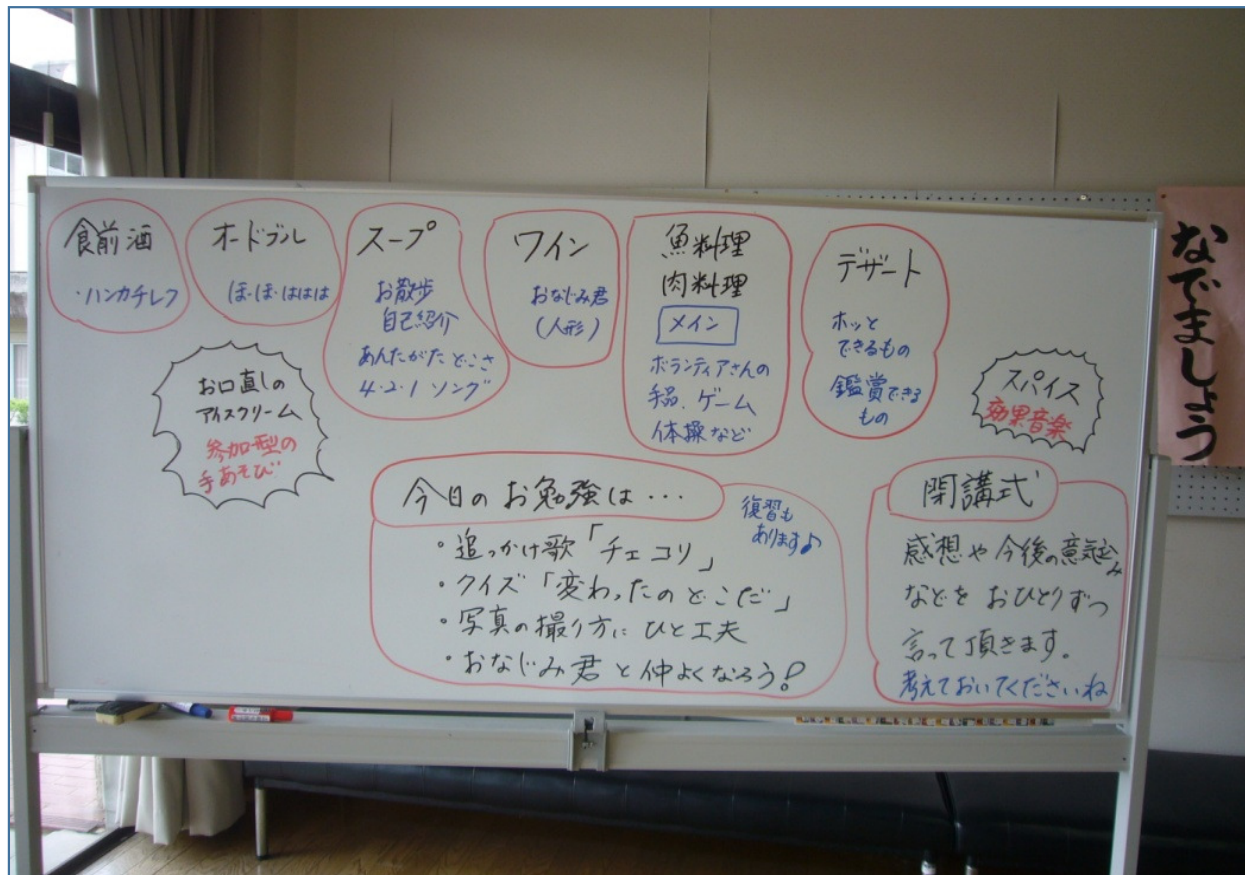 食前酒
・ハンカチレフ
オードブル
ほ・ほ・ははは
スープ
お散歩
自己紹介
あんたがたどこさ
4・2・1 ソング
ワイン
おなじみ君
(人形)
魚料理
肉料理
メイン
ボランティアさんの
手品、ゲーム
体操など
デザート
ホッと
できるもの
鑑賞できる
もの
お口直しの
アイスクリーム
参加型の
手あそび
スパイス
効果音楽
今日のお勉強は・・・
復習も
あります♪
・追っかけ歌「チェコリ」
・クイズ「変わったのどこだ」
・写真の撮り方にひと工夫
・おなじみ君と仲よくなろう!
閉講式
感想や今後の意気込み
などをおひとりずつ
言って頂きます。
考えておいてくださいね
なでましょう